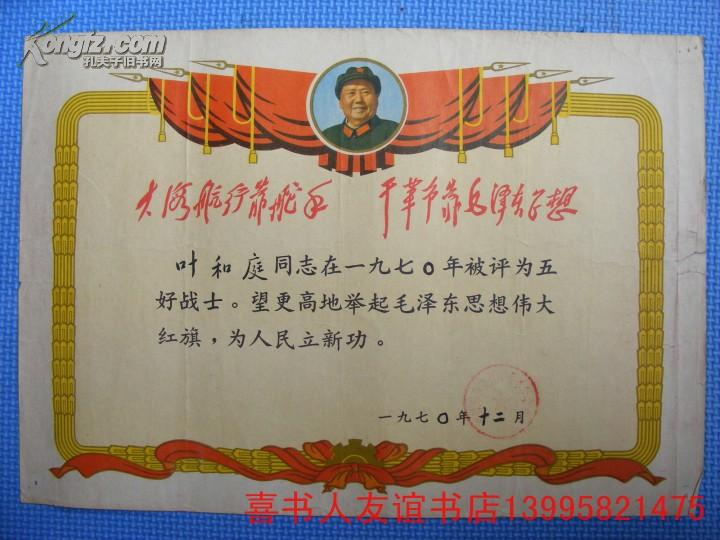 Kongfz.com
孔夫子旧书网
大海航行靠舵手 干革命靠毛泽东思想
叶和庭同志在一九七〇年被评为五
好战士。望更高地举起毛泽东思想伟大
红旗，为人民立新功。
一九七〇年十二月
喜书人友谊书店13995821475